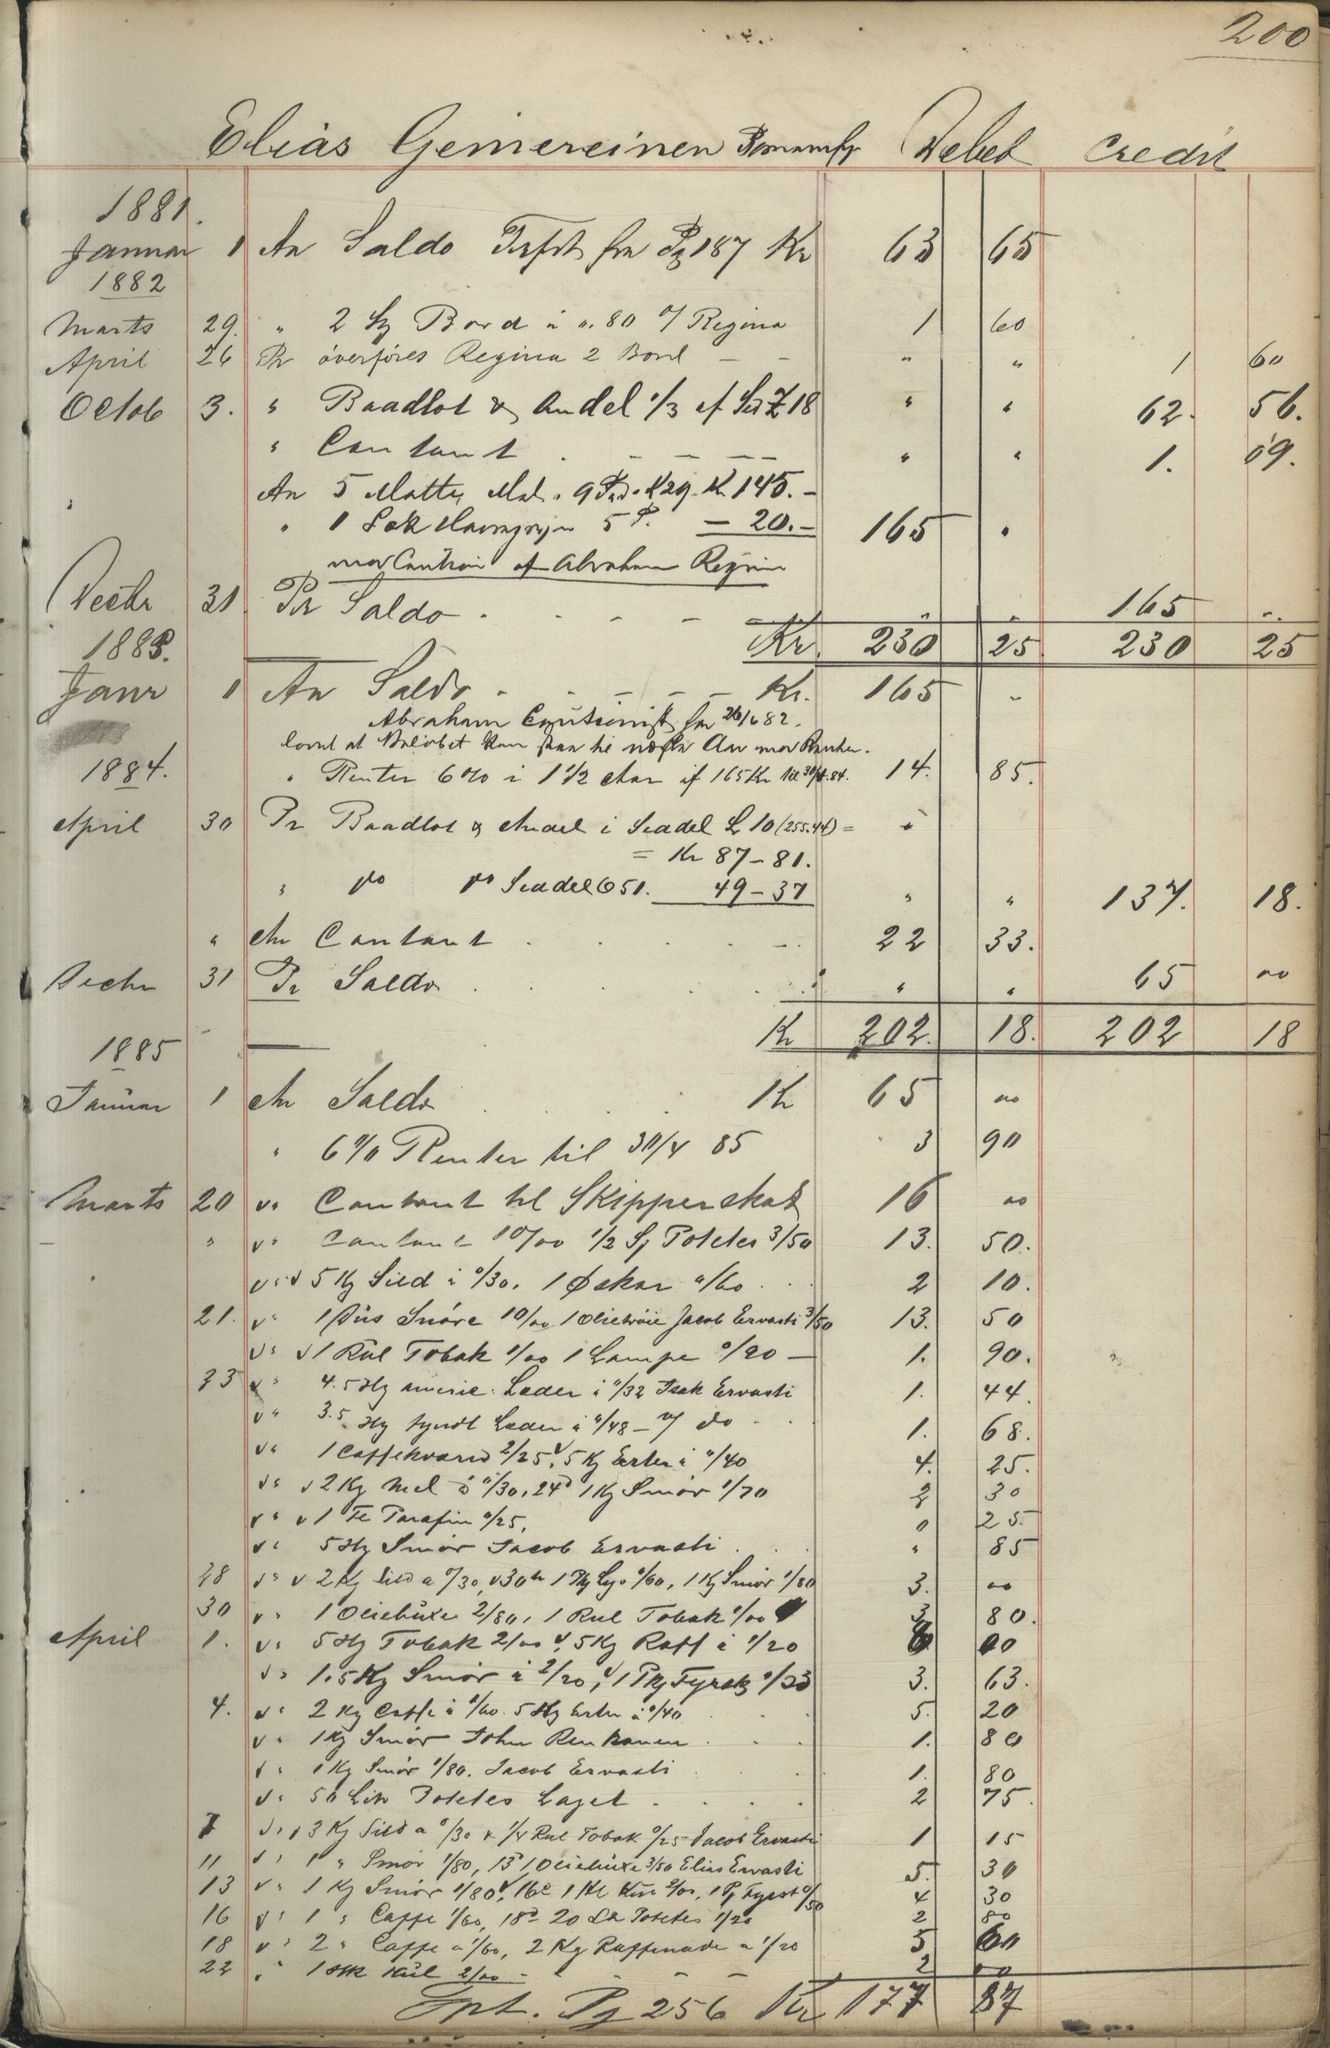 200
Elias Gemereinen Debet Credit
1881.
Januar 1 An Saldo Trfrt fra Pg 187 Kr 63 65
1882
Marts 29. " 2 Bord à ". 80 Regina 1 60
April 26 Pr överföres Regina 2 Bord — — " " 1 60
Octob 3. " Baadlot & Andel 1/3 af 18 " " 62. 56.
" Contant . — — — — " " 1. 09.
" An 5 Matter Mel. 9 K 29. Kr 145. —
" 1 Sæk Havregryn 5 P. — 20. — 165 "
mod Caution af Abraham Regina
Decbr 31 Pr Saldo . . — — — " " 165 "
1883. Kr. 230 25 230 25
Janr 1 An Saldo . . — — — Kr. 165 "
Abraham Cautionist fra 26/6 82.
lovet at Beløbet kan staa til næste Aar mod Renter.
1884. " Renter 6% i 1 1/2 Aar af 165 Kr til 30/4. 84. 14. 85.
April 30 Pr Baadlot & Andel i Seddel L 10 (255.44) = "
= Kr 87 – 81.
" do do Seddel 651. 49 – 37 " " 137. 18.
" An Contant . . . . — 22 33.
Decbr 31 Pr Saldo . . . . " " 65 00
Kr 202. 18. 202 18
1885
Januar 1 An Saldo . . . Kr 65 00
" 6% Renter til 30/4 85 3 90
Marts 20 v. Contant til Skipperskat 16 00
" v. Contant 10/00 1/2 Potetes 3/50 13. 50.
v. v 5 Kg Sild à 0/30. 1 Øskar 0/60 . . . 2 10.
21. v. 1 Snöre 10/00 1 Olietröie Jacob Ervasti 3/50 13. 50
v. v 1 Rul Tobak 1/00 1 Lampe 0/90 — 1. 90.
23 v. 4.5 Hg Leder à 0/32 Isak Ervasti 1. 44.
v. 3.5 Hg tyndt Leder à 0/48 — do . . 1. 68.
v. 1 Caffekværn 2/25. v 5 Kg Erter à 0/40 4. 25.
v. v 2 Kg Mel à 0/30, 24d 1 Kg Smör 1/70 2 30
v. v 1 Parafin 0/25, 0 25.
v. 5 Hg Smör Jacob Ervasti . . " 85
28 v. v 2 Kg Sild a 0/30, v 30te 1 Pkg Lys 0/60, 1 Kg Smör 1/80 3. 00
30 v. 1 Oliebuxe 2/80, 1 Rul Tobak 1/00 3 80.
April 1. v. 5 Hg Tobak 2/00 v, 5 Kg Raff à 1/20
v. 1.5 Kg Smör à 2/20, v 1 Pkg Fyrstk 0/33 3. 63.
4. v. 2 Kg Caffe à 1/60. 5 Kg Erter à 0/40. . . . 5. 20
v. 1 Kg Smör John . . . 1. 80
v. 1 Kg Smör 1/80. Jacob Ervasti . . 1. 80
v. 50 Litr Potetes Laget . . . . . 2 75.
7 v. v 3 Kg Sild a 0/30 & 1/4 Rul Tobak 0/25 Jacob Ervasti 1 15
11 v. 1 " Smör 1/80, 13d 1 Oliebuxe 3/50 Elias Ervasti 5. 30
13 v. 1 Kg Smör 1/80 v, 16d 1 2/00, 1 Pg Fyrst 0/50 4 30
16 v. 1 " Caffe 1/60, 18d 20 Ltr Potetes 1/20 2 80
18 v. 2 " Caffe a 1/60, 2 Kg Raffenade a 1/20 5 60
22 " 1 Stk 2/00 — . — — — 2 00
Tpt. Pg 256 Kr 177 87